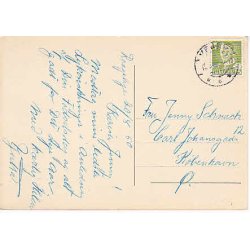 20/8 60
Kære Jenny!
Modtag mine bedste
Lykønskninger i Anledning
af Din Fødselsdag og alt
godt for det nye Aar
Med kærlig Hilsen
Fru Jenny Schmuck
Carl Johansgade
København
Ø.